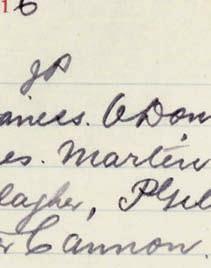 16
JP
ainess. O Don
es. Martin
llagher, P
er Cannon.